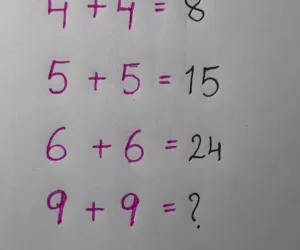 4 + 4 = 8
5 + 5 = 15
6 + 6 = 24
9 + 9 = ?